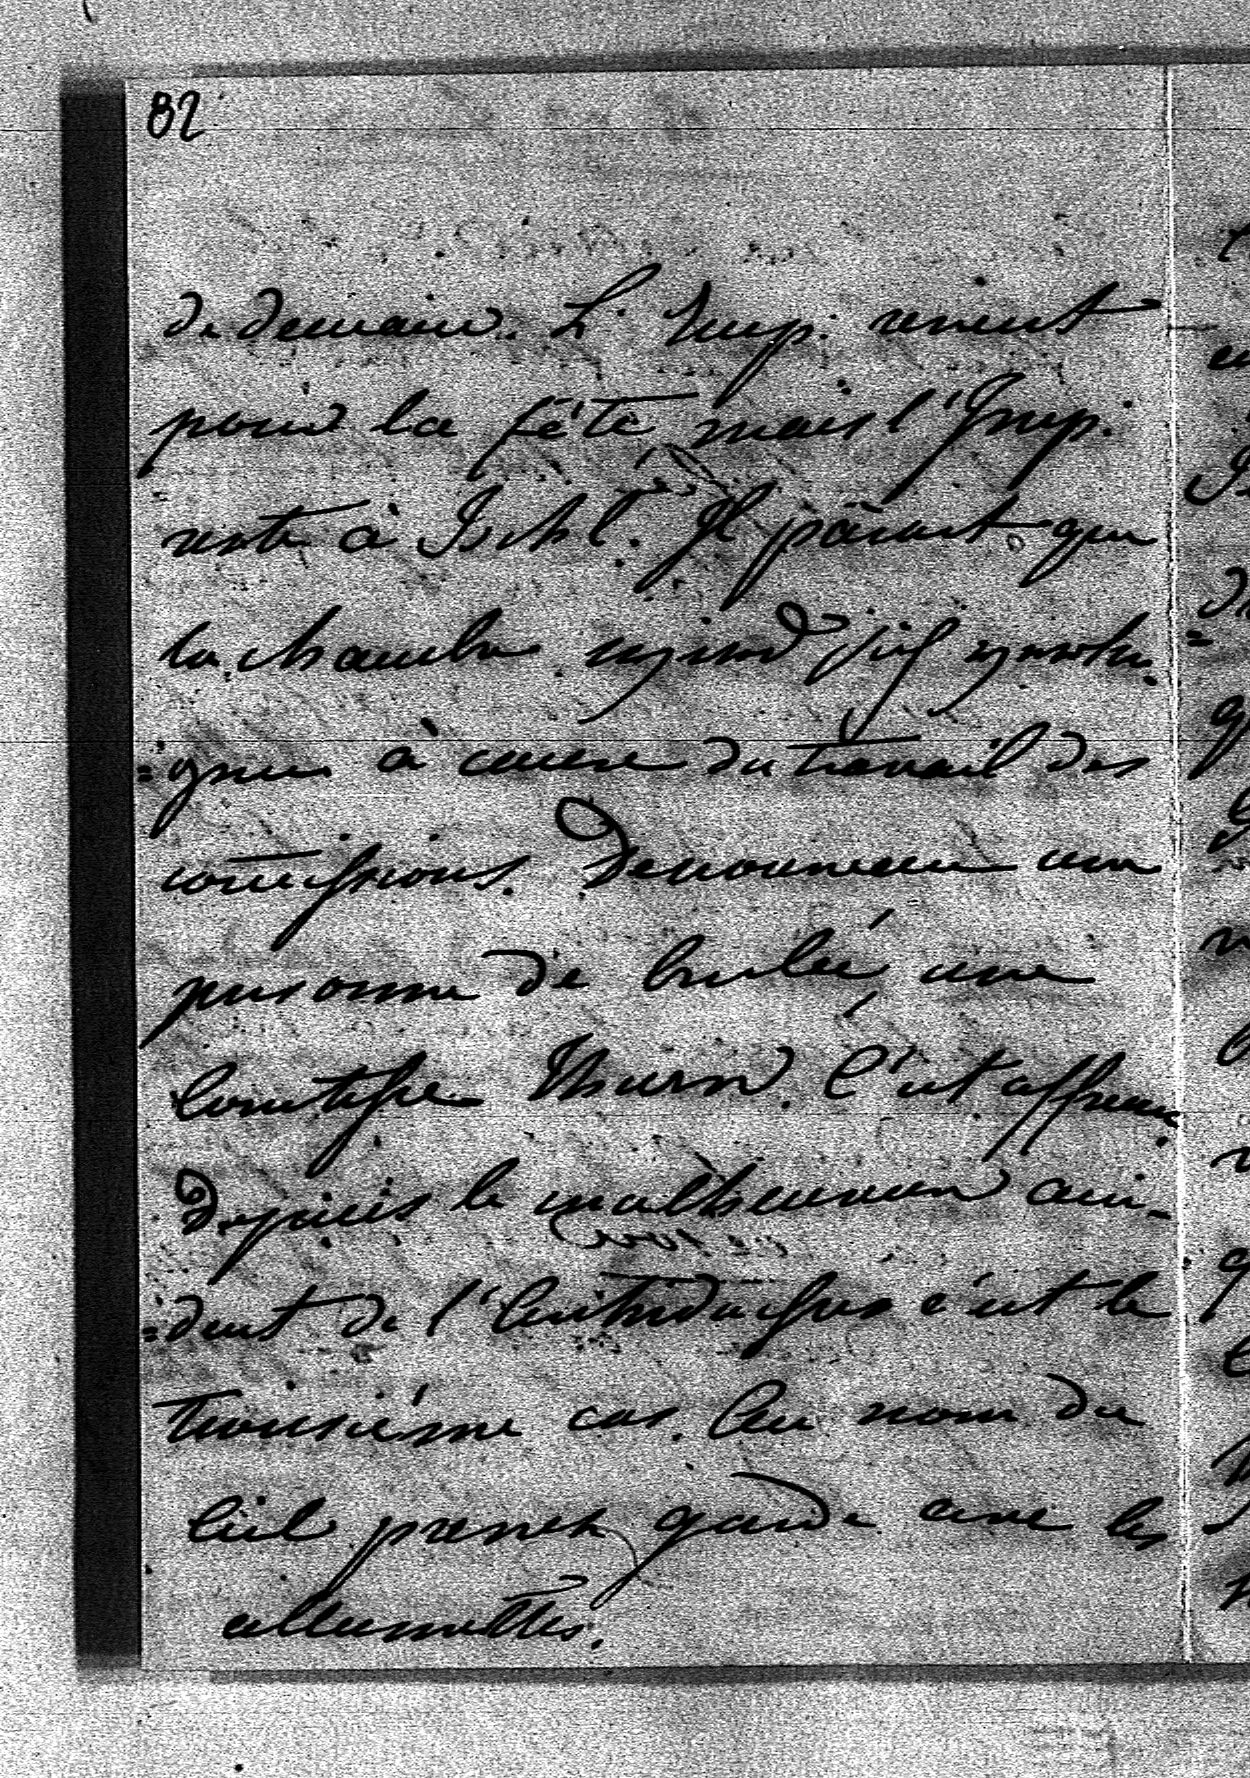 82
de demain. L'Emp. vient
pour la fête, mais l'Imp.
reste à Ischl. Il paraît que
la chambre
à cause du travail des
comissions. De nouveau une
personne de brulée, une
Comtesse Thurn. C'est affreux.
Depuis le malheureux acci-
=dent de l'Archiduchesse c'est le
troisième cas. Au nom du
Ciel prenez garde avec les
allumettes.